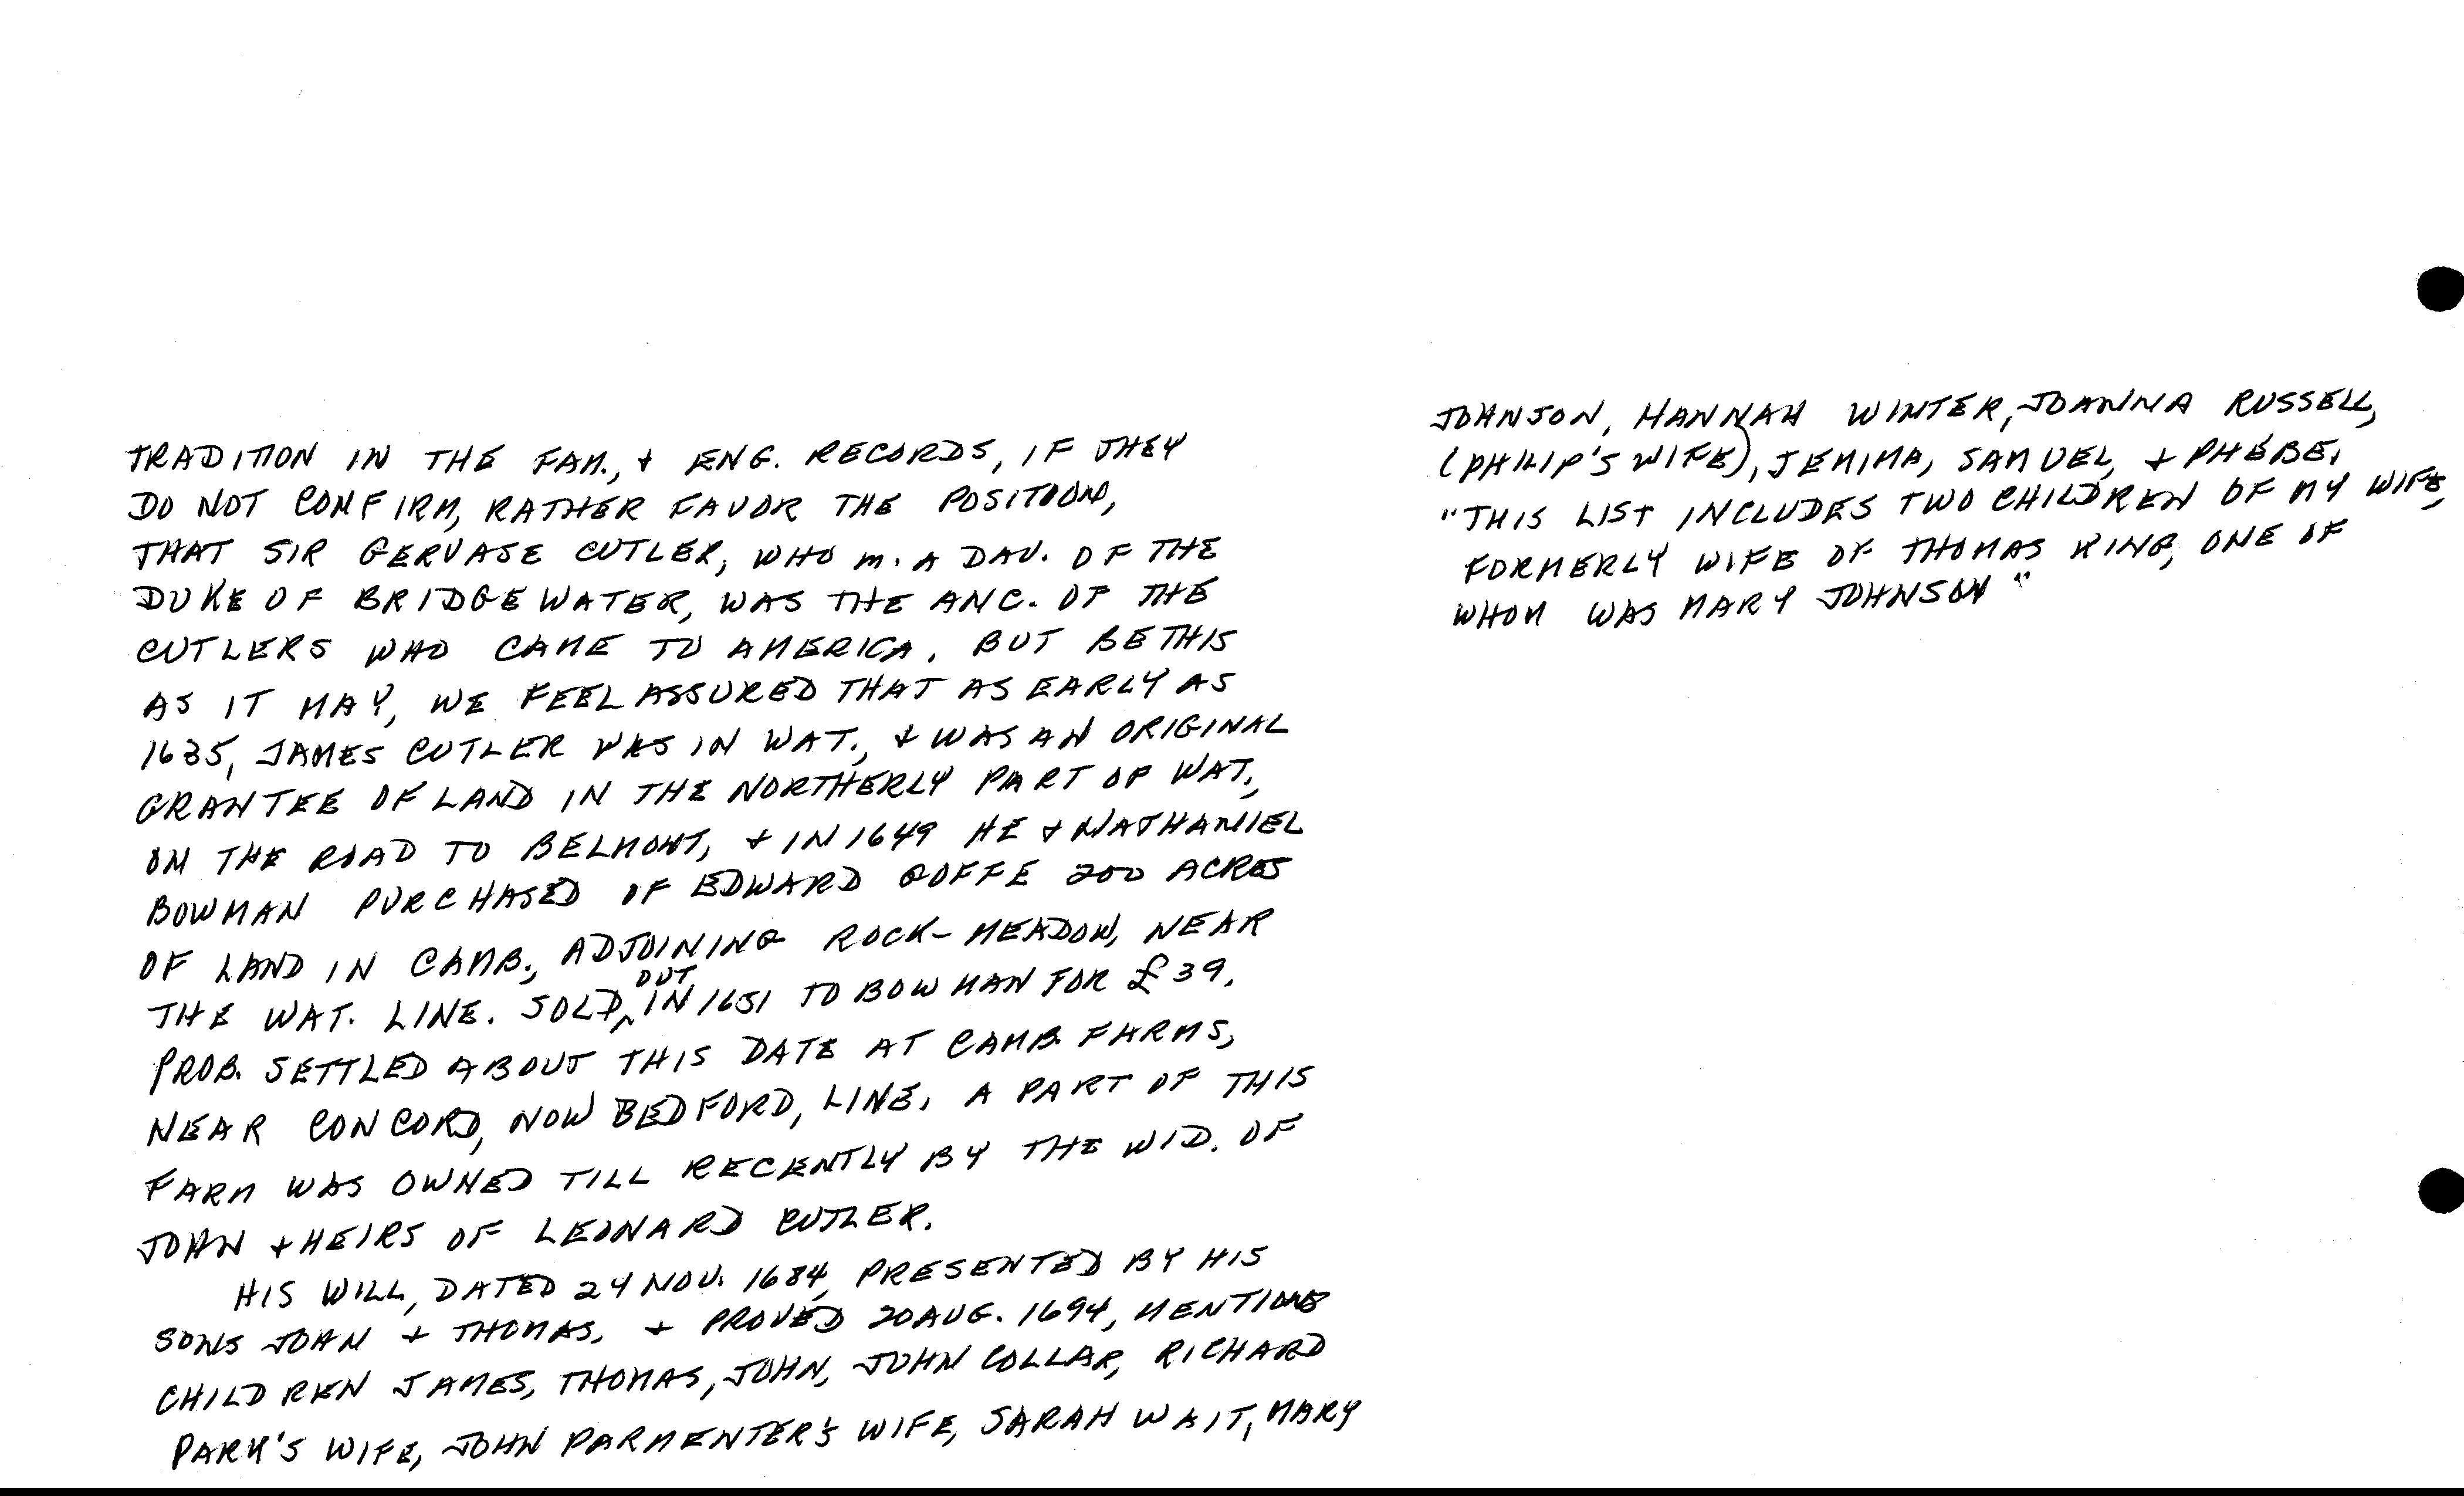 TRADITION IN THE FAM., & ENG. RECORDS, IF THEY
DO NOT CONFIRM, RATHER FAVOR THE POSITION,
THAT SIR GERVASE CUTLER, WHO m. A DAU. OF THE
DUKE OF BRIDGEWATER, WAS THE ANC. OF THE
CUTLERS WHO CAME TO AMERICA. BUT BE THIS
AS IT MAY, WE FEEL ASSURED THAT AS EARLY AS
1635, JAMES CUTLER WAS IN WAT., & WAS AN ORIGINAL
GRANTEE OF LAND IN THE NORTHERLY PART OF WAT.,
ON THE ROAD TO BELMONT, & IN 1649 HE & NATHANIEL
BOWMAN PURCHASED OF EDWARD GOFFE 200 ACRES
OF LAND IN CAMB., ADJOINING ROCK-MEADOW, NEAR
THE WAT. LINE. SOLD OUT IN 1651 TO BOWMAN FOR £39.
PROB. SETTLED ABOUT THIS DATE AT CAMB. FARMS,
NEAR CONCORD, NOW BEDFORD, LINE. A PART OF THIS
FARM WAS OWNED TILL RECENTLY BY THE WID. OF
JOHN & HEIRS OF LEONARD CUTLER.
HIS WILL, DATED 24 NOV. 1684, PRESENTED BY HIS
SONS JOHN & THOMAS, & PROVED 20 AUG. 1694, MENTIONS
CHILDREN JAMES, THOMAS, JOHN, JOHN COLLAR, RICHARD
PARK'S WIFE, JOHN PARMENTER'S WIFE, SARAH WAIT, MARY
JOHNSON, HANNAH WINTER, JOANNA RUSSELL,
(PHILIP'S WIFE), JEMIMA, SAMUEL, & PHEBE.
"THIS LIST INCLUDES TWO CHILDREN OF MY WIFE,
FORMERLY WIFE OF THOMAS KING, ONE OF
WHOM WAS MARY JOHNSON"